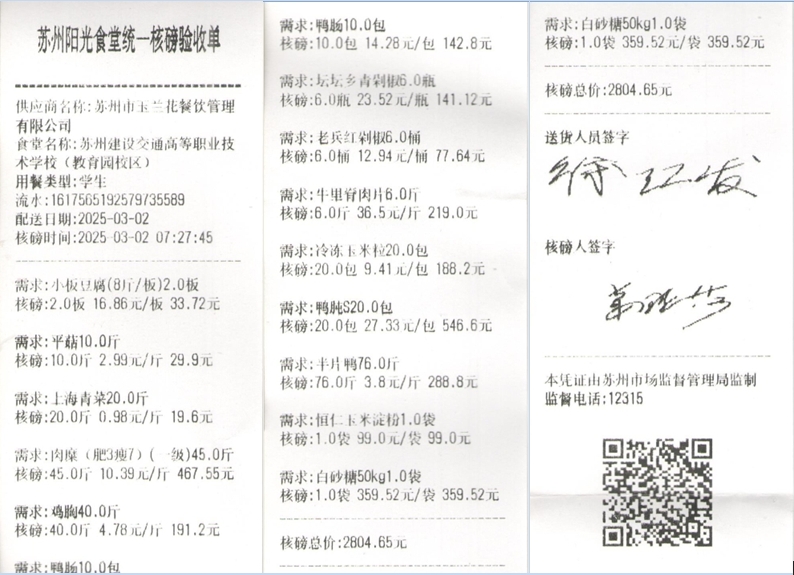 苏州阳光食堂统一核磅验收单
供应商名称:苏州市玉兰花餐饮管理
有限公司
食堂名称:苏州建设交通高等职业技
术学校（教育园校区）
用餐类型:学生
流水:1617565192579/35589
配送日期:2025-03-02
核磅时间:2025-03-02 07:27:45
需求:小板豆腐(8斤/板)2.0板
核磅:2.0板 16.86元/板 33.72元
需求:平菇10.0斤
核磅:10.0斤 2.99元/斤 29.9元
需求:上海青菜20.0斤
核磅:20.0斤 0.98元/斤 19.6元
需求:肉糜（肥3瘦7）(一级)45.0斤
核磅:45.0斤 10.39元/斤 467.55元
需求:鸡胸40.0斤
核磅:40.0斤 4.78元/斤 191.2元
需求:鸭肠10.0包
需求:鸭肠10.0包
核磅:10.0包 14.28元/包 142.8元
需求:坛坛乡青剁椒6.0瓶
核磅:6.0瓶 23.52元/瓶 141.12元
需求:老兵红剁椒6.0桶
核磅:6.0桶 12.94元/桶 77.64元
需求:牛里脊肉片6.0斤
核磅:6.0斤 36.5元/斤 219.0元
需求:冷冻玉米粒20.0包
核磅:20.0包 9.41元/包 188.2元
需求:鸭肫S20.0包
核磅:20.0包 27.33元/包 546.6元
需求:半片鸭76.0斤
核磅:76.0斤 3.8元/斤 288.8元
需求:恒仁玉米淀粉1.0袋
核磅:1.0袋 99.0元/袋 99.0元
需求:白砂糖50kg1.0袋
核磅:1.0袋 359.52元/袋 359.52元
核磅总价:2804.65元
需求:白砂糖50kg1.0袋
核磅:1.0袋 359.52元/袋 359.52元
核磅总价:2804.65元
送货人员签字
核磅人签字
本凭证由苏州市场监督管理局监制
监督电话:12315